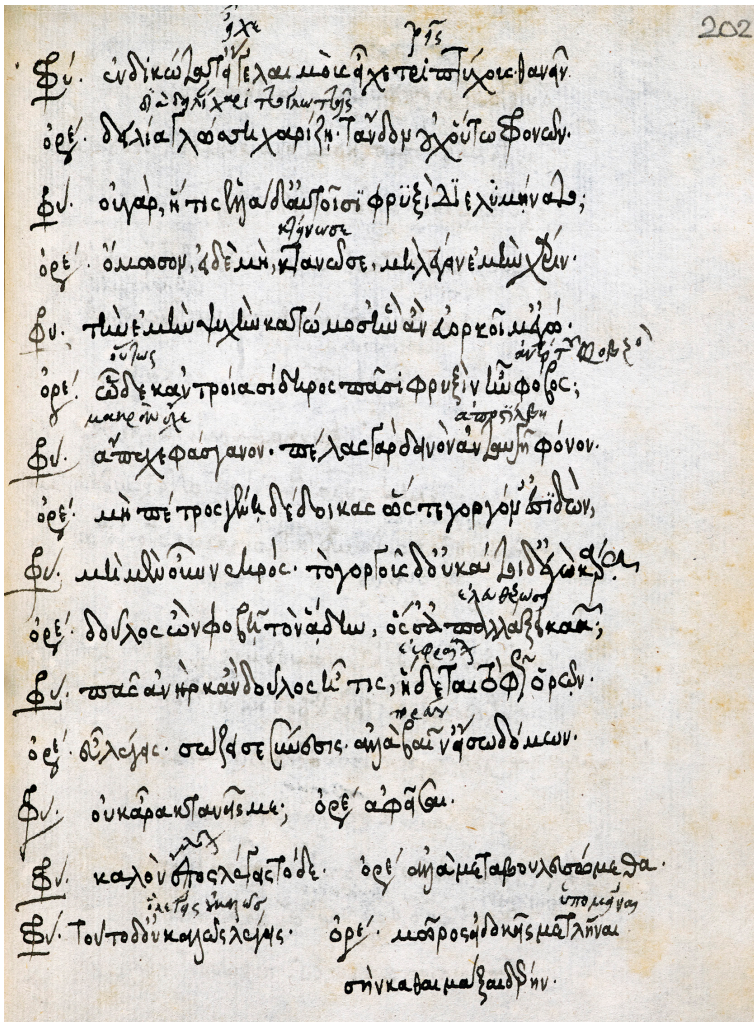 202
εἶχε τρεῖς
Φρύ. ἐνδικώτατ' εἴ γε λαιμοὺς εἶχε τριπτύχους θανεῖν.
Ὀρέ. δειλία γλώσση χαρίζη· τἄνδον οὐχ οὕτω φρονῶν.
Φρύ. οὐ γάρ, ἥτις ἑλλάδ' αὐτοῖσι φρυξὶ διελυμήνατο;
κτείνω σε
Ὀρέ. ὄμοσον, εἰ δὲ μὴ, κτανῶ σε, μὴ λέγειν ἐμὴν χάριν.
Φρυ. τὴν ἐμὴν ψυχὴν κατώμοσ' ἣν ἂν εὐορκοῖμ' ἐγώ.
οὕτως
Ὀρέ. ὧδε κἀν τροία σίδηρος πᾶσι φρυξὶν ἦν φόβος;
μακρὰν ἔχε
Φρύ. ἄπεχε φάσγανον. πέλας γὰρ δεινὸν ἀνταυγεῖ φόνον.
Ὀρέ. μὴ πέτρος γένη δέδοικας ὥστε γοργόν' εἰσιδών,
Φρύ. μὴ μὲν οὖν νεκρός. τὸ γοργοῦς δ' οὐ κάτοιδ' ἐγὼ κάρα
Ὀρέ. δοῦλος ὢν φοβῆ τὸν ἅδην, ὅς σ' ἀπαλλάξει κακῶν;
Φρύ. πᾶς ἀνὴρ κἂν δοῦλος ᾖ τις, ἥδεται τὸ φῶς ὁρῶν.
Ὀρέ. εὖ λέγεις. σώζει σε σύνεσις. ἀλλὰ βαῖν' εἴσω δόμων.
Φρύ. οὐκ ἄρα κτανεῖς με; Ὀρέ. ἀφεῖσαι.
Φρύ. καλὸν ἔπος λέγεις τόδε. Ὀρέ. ἀλλὰ μεταβουλευσόμεθα.
ὑπομεῖναι
Φρύ. τοῦτο δ' οὐ καλῶς λέγεις. Ὀρέ. μῶρος εἰ δοκεῖς με τλῆναι
σὴν καθαιμάξαι δέρην.